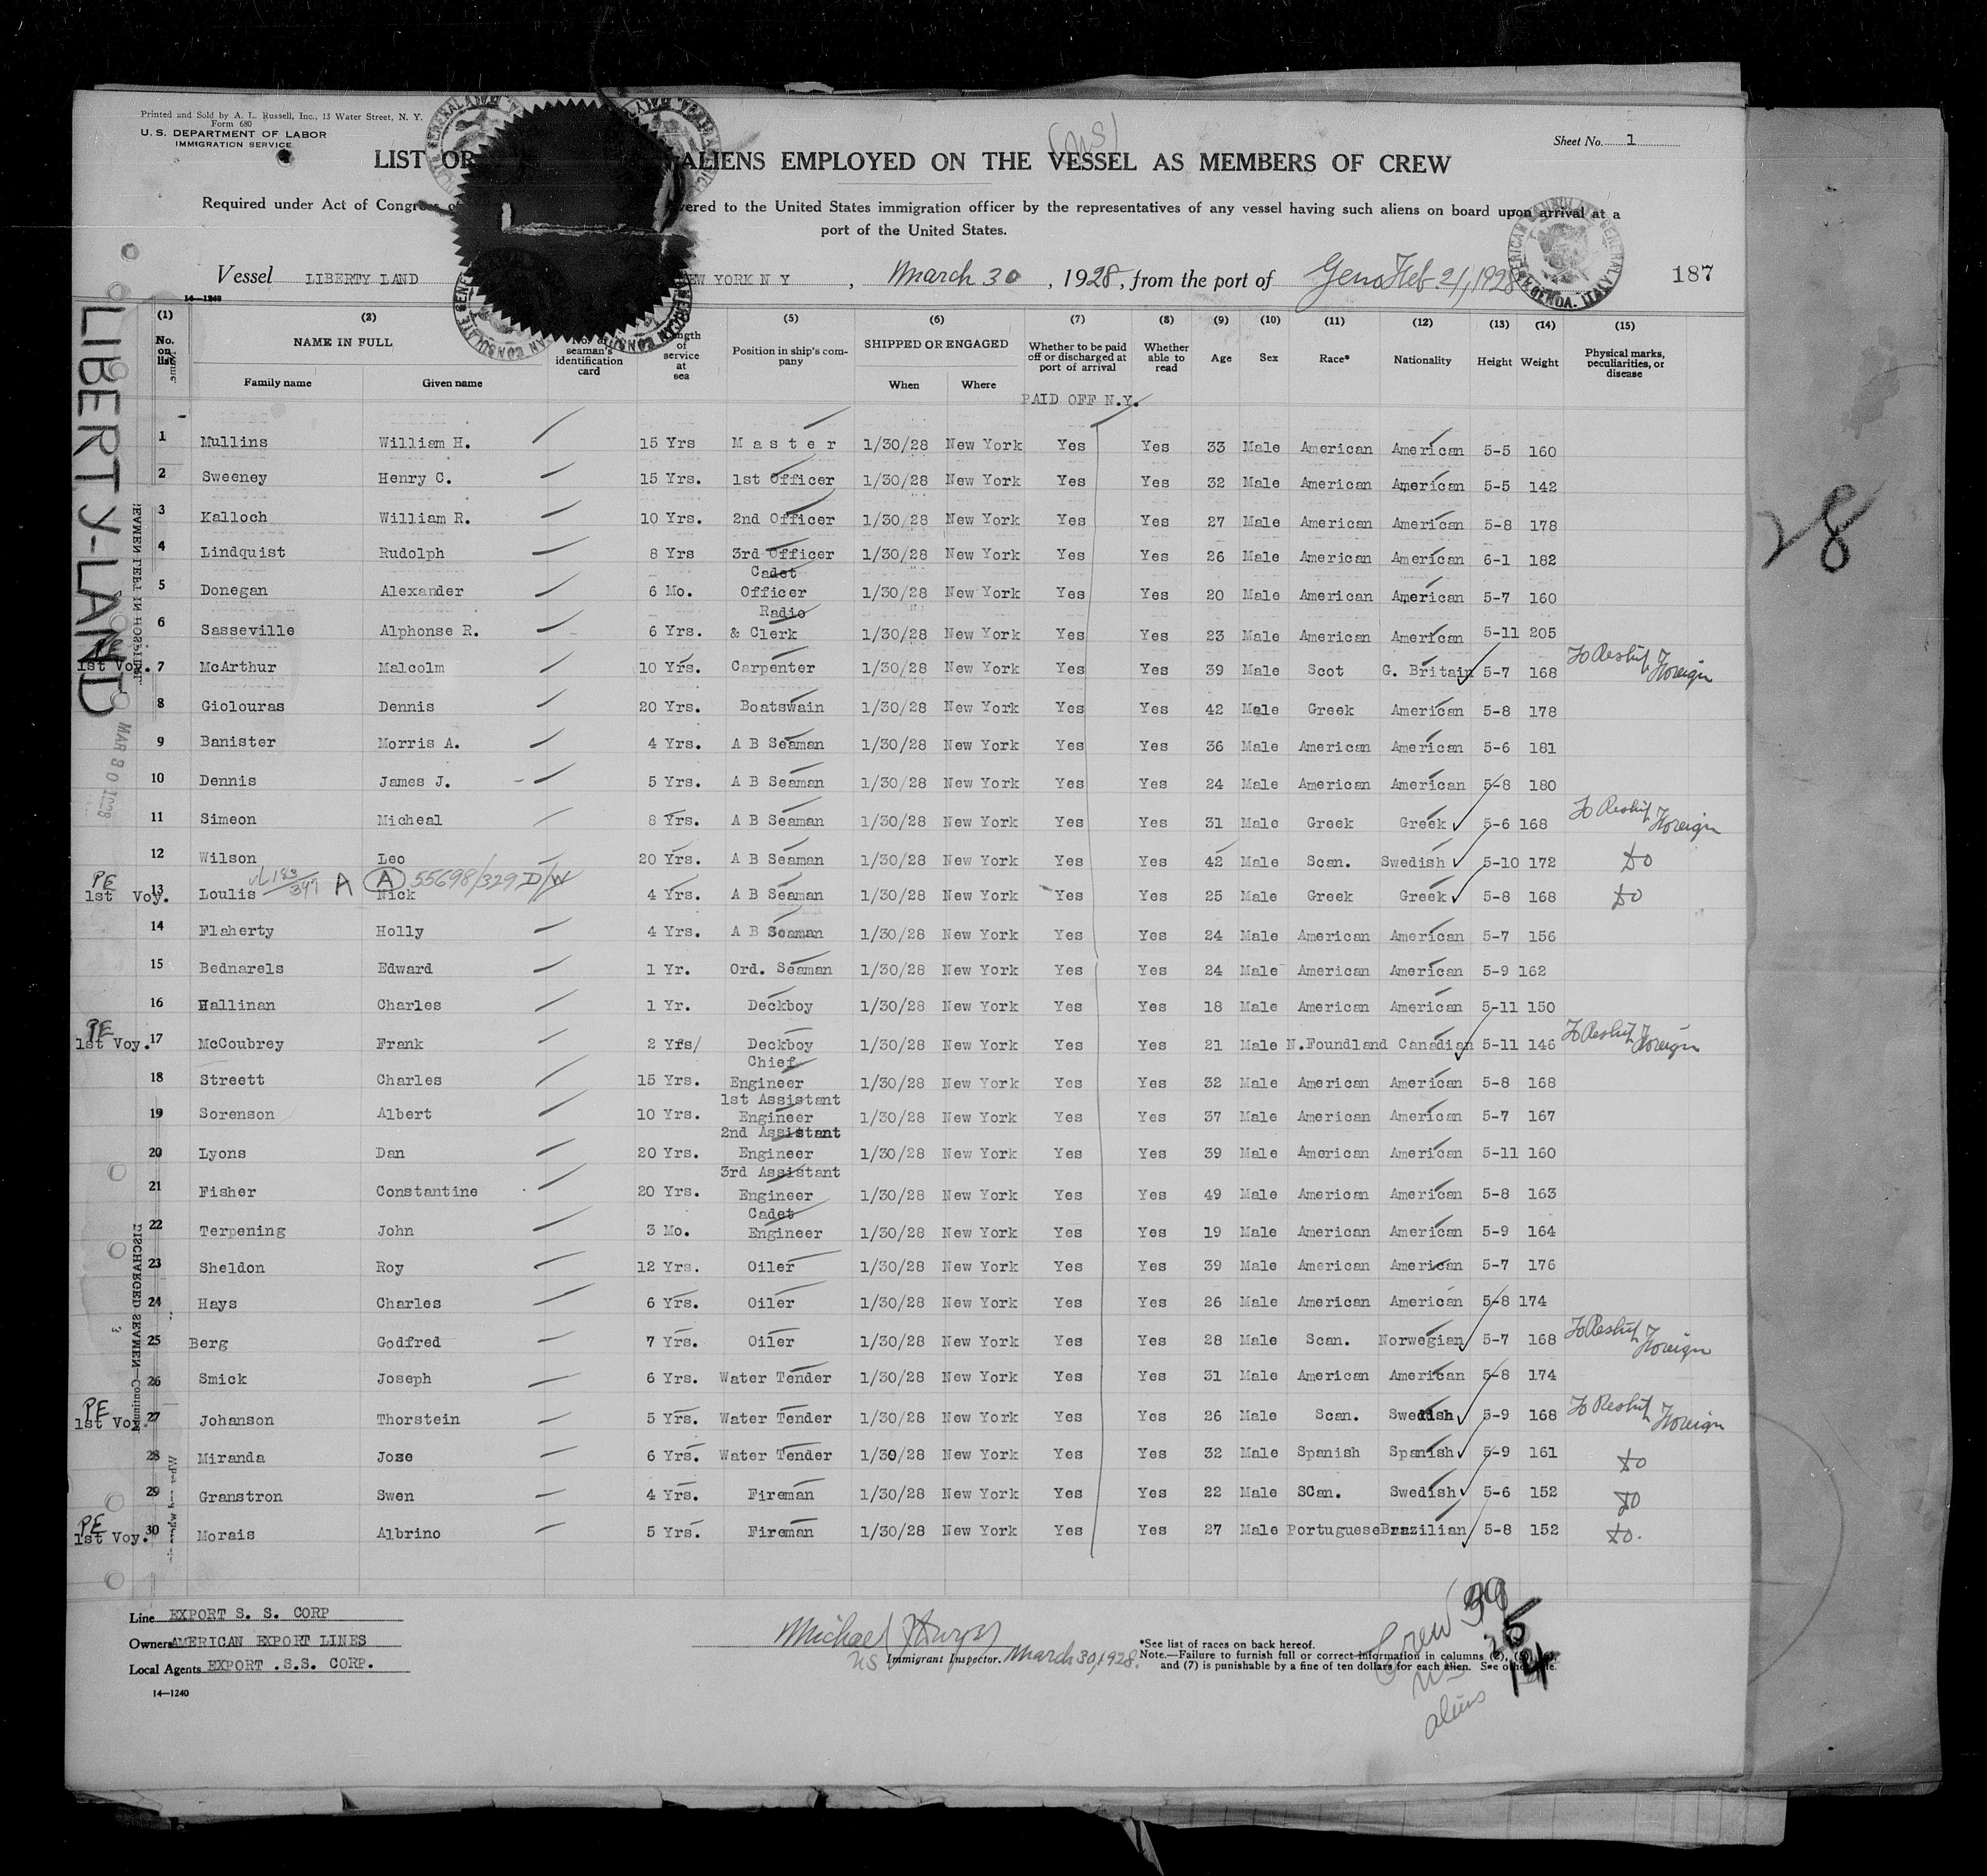 Printed and Sold by A. L. Russell, Inc., 13 Water Street, N. Y.
Form 680
U. S. DEPARTMENT OF LABOR
IMMIGRATION SERVICE
Sheet No. 1
(US)
LIST OR ALIENS EMPLOYED ON THE VESSEL AS MEMBERS OF CREW
Required under Act of Congress to the United States immigration officer by the representatives of any vessel having such aliens on board upon arrival at a
port of the United States.
Vessel LIBERTY LAND NEW YORK N Y , March 30 , 1928, from the port of Genoa Feb 21, 1928
187
AMERICAN CONSULATE GENERAL GENOA. ITALY
14—1240
LIBERTY-LAND
MAR 30 1928
28
SEAMEN LEFT IN HOSPITAL
DISCHARGED SEAMEN—Continued
(1) (2) (5) (6) (7) (8) (9) (10) (11) (12) (13) (14) (15)
No. on list NAME IN FULL Family name Given name No. of seaman's identification card Length of service at sea Position in ship's company SHIPPED OR ENGAGED When Where Whether to be paid off or discharged at port of arrival Whether able to read Age Sex Race* Nationality Height Weight Physical marks, peculiarities, or disease
PAID OFF N.Y.
1 Mullins William H. 15 Yrs Master 1/30/28 New York Yes Yes 33 Male American American 5-5 160
2 Sweeney Henry C. 15 Yrs. 1st Officer 1/30/28 New York Yes Yes 32 Male American American 5-5 142
3 Kalloch William R. 10 Yrs. 2nd Officer 1/30/28 New York Yes Yes 27 Male American American 5-8 178
4 Lindquist Rudolph 8 Yrs 3rd Officer 1/30/28 New York Yes Yes 26 Male American American 6-1 182
5 Donegan Alexander 6 Mo. Cadet Officer 1/30/28 New York Yes Yes 20 Male American American 5-7 160
6 Sasseville Alphonse R. 6 Yrs. Radio & Clerk 1/30/28 New York Yes Yes 23 Male American American 5-11 205
1st Voy. 7 McArthur Malcolm 10 Yrs. Carpenter 1/30/28 New York Yes Yes 39 Male Scot G. Britain 5-7 168 To Reship Foreign
8 Giolouras Dennis 20 Yrs. Boatswain 1/30/28 New York Yes Yes 42 Male Greek American 5-8 178
9 Banister Morris A. 4 Yrs. A B Seaman 1/30/28 New York Yes Yes 36 Male American American 5-6 181
10 Dennis James J. 5 Yrs. A B Seaman 1/30/28 New York Yes Yes 24 Male American American 5-8 180
11 Simeon Micheal 8 Yrs. A B Seaman 1/30/28 New York Yes Yes 31 Male Greek Greek 5-6 168 To Reship Foreign
12 Wilson Leo 20 Yrs. A B Seaman 1/30/28 New York Yes Yes 42 Male Scan. Swedish 5-10 172 do
183/347 A A 55698/329 D/W
PE 1st Voy. 13 Loulis Nick 4 Yrs. A B Seaman 1/30/28 New York Yes Yes 25 Male Greek Greek 5-8 168 do
14 Flaherty Holly 4 Yrs. A B Seaman 1/30/28 New York Yes Yes 24 Male American American 5-7 156
15 Bednarels Edward 1 Yr. Ord. Seaman 1/30/28 New York Yes Yes 24 Male American American 5-9 162
16 Hallinan Charles 1 Yr. Deckboy 1/30/28 New York Yes Yes 18 Male American American 5-11 150
PE 1st Voy. 17 McCoubrey Frank 2 Yrs/ Deckboy 1/30/28 New York Yes Yes 21 Male N.Foundland Canadian 5-11 146 To Reship Foreign
18 Streett Charles 15 Yrs. Chief Engineer 1/30/28 New York Yes Yes 32 Male American American 5-8 168
19 Sorenson Albert 10 Yrs. 1st Assistant Engineer 1/30/28 New York Yes Yes 37 Male American American 5-7 167
20 Lyons Dan 20 Yrs. 2nd Assistant Engineer 1/30/28 New York Yes Yes 39 Male American American 5-11 160
21 Fisher Constantine 20 Yrs. 3rd Assistant Engineer 1/30/28 New York Yes Yes 49 Male American American 5-8 163
22 Terpening John 3 Mo. Cadet Engineer 1/30/28 New York Yes Yes 19 Male American American 5-9 164
23 Sheldon Roy 12 Yrs. Oiler 1/30/28 New York Yes Yes 39 Male American American 5-7 176
24 Hays Charles 6 Yrs. Oiler 1/30/28 New York Yes Yes 26 Male American American 5-8 174
25 Berg Godfred 7 Yrs. Oiler 1/30/28 New York Yes Yes 28 Male Scan. Norwegian 5-7 168 To Reship Foreign
26 Smick Joseph 6 Yrs. Water Tender 1/30/28 New York Yes Yes 31 Male American American 5-8 174
PE 1st Voy. 27 Johanson Thorstein 5 Yrs. Water Tender 1/30/28 New York Yes Yes 26 Male Scan. Swedish 5-9 168 To Reship Foreign
28 Miranda Jose 6 Yrs. Water Tender 1/30/28 New York Yes Yes 32 Male Spanish Spanish 5-9 161 do
29 Granstron Swen 4 Yrs. Fireman 1/30/28 New York Yes Yes 22 Male SCan. Swedish 5-6 152 do
PE 1st Voy. 30 Morais Albrino 5 Yrs. Fireman 1/30/28 New York Yes Yes 27 Male Portuguese Brazilian 5-8 152 do.
Line EXPORT S. S. CORP
Owners AMERICAN EXPORT LINES
Local Agents EXPORT .S.S. CORP.
14—1240
Michael
US Immigrant Inspector. March 30, 1928.
*See list of races on back hereof.
Note.—Failure to furnish full or correct information in columns (2), (5),
and (7) is punishable by a fine of ten dollars for each alien. See other side.
Crew 39
US 25
aliens 14